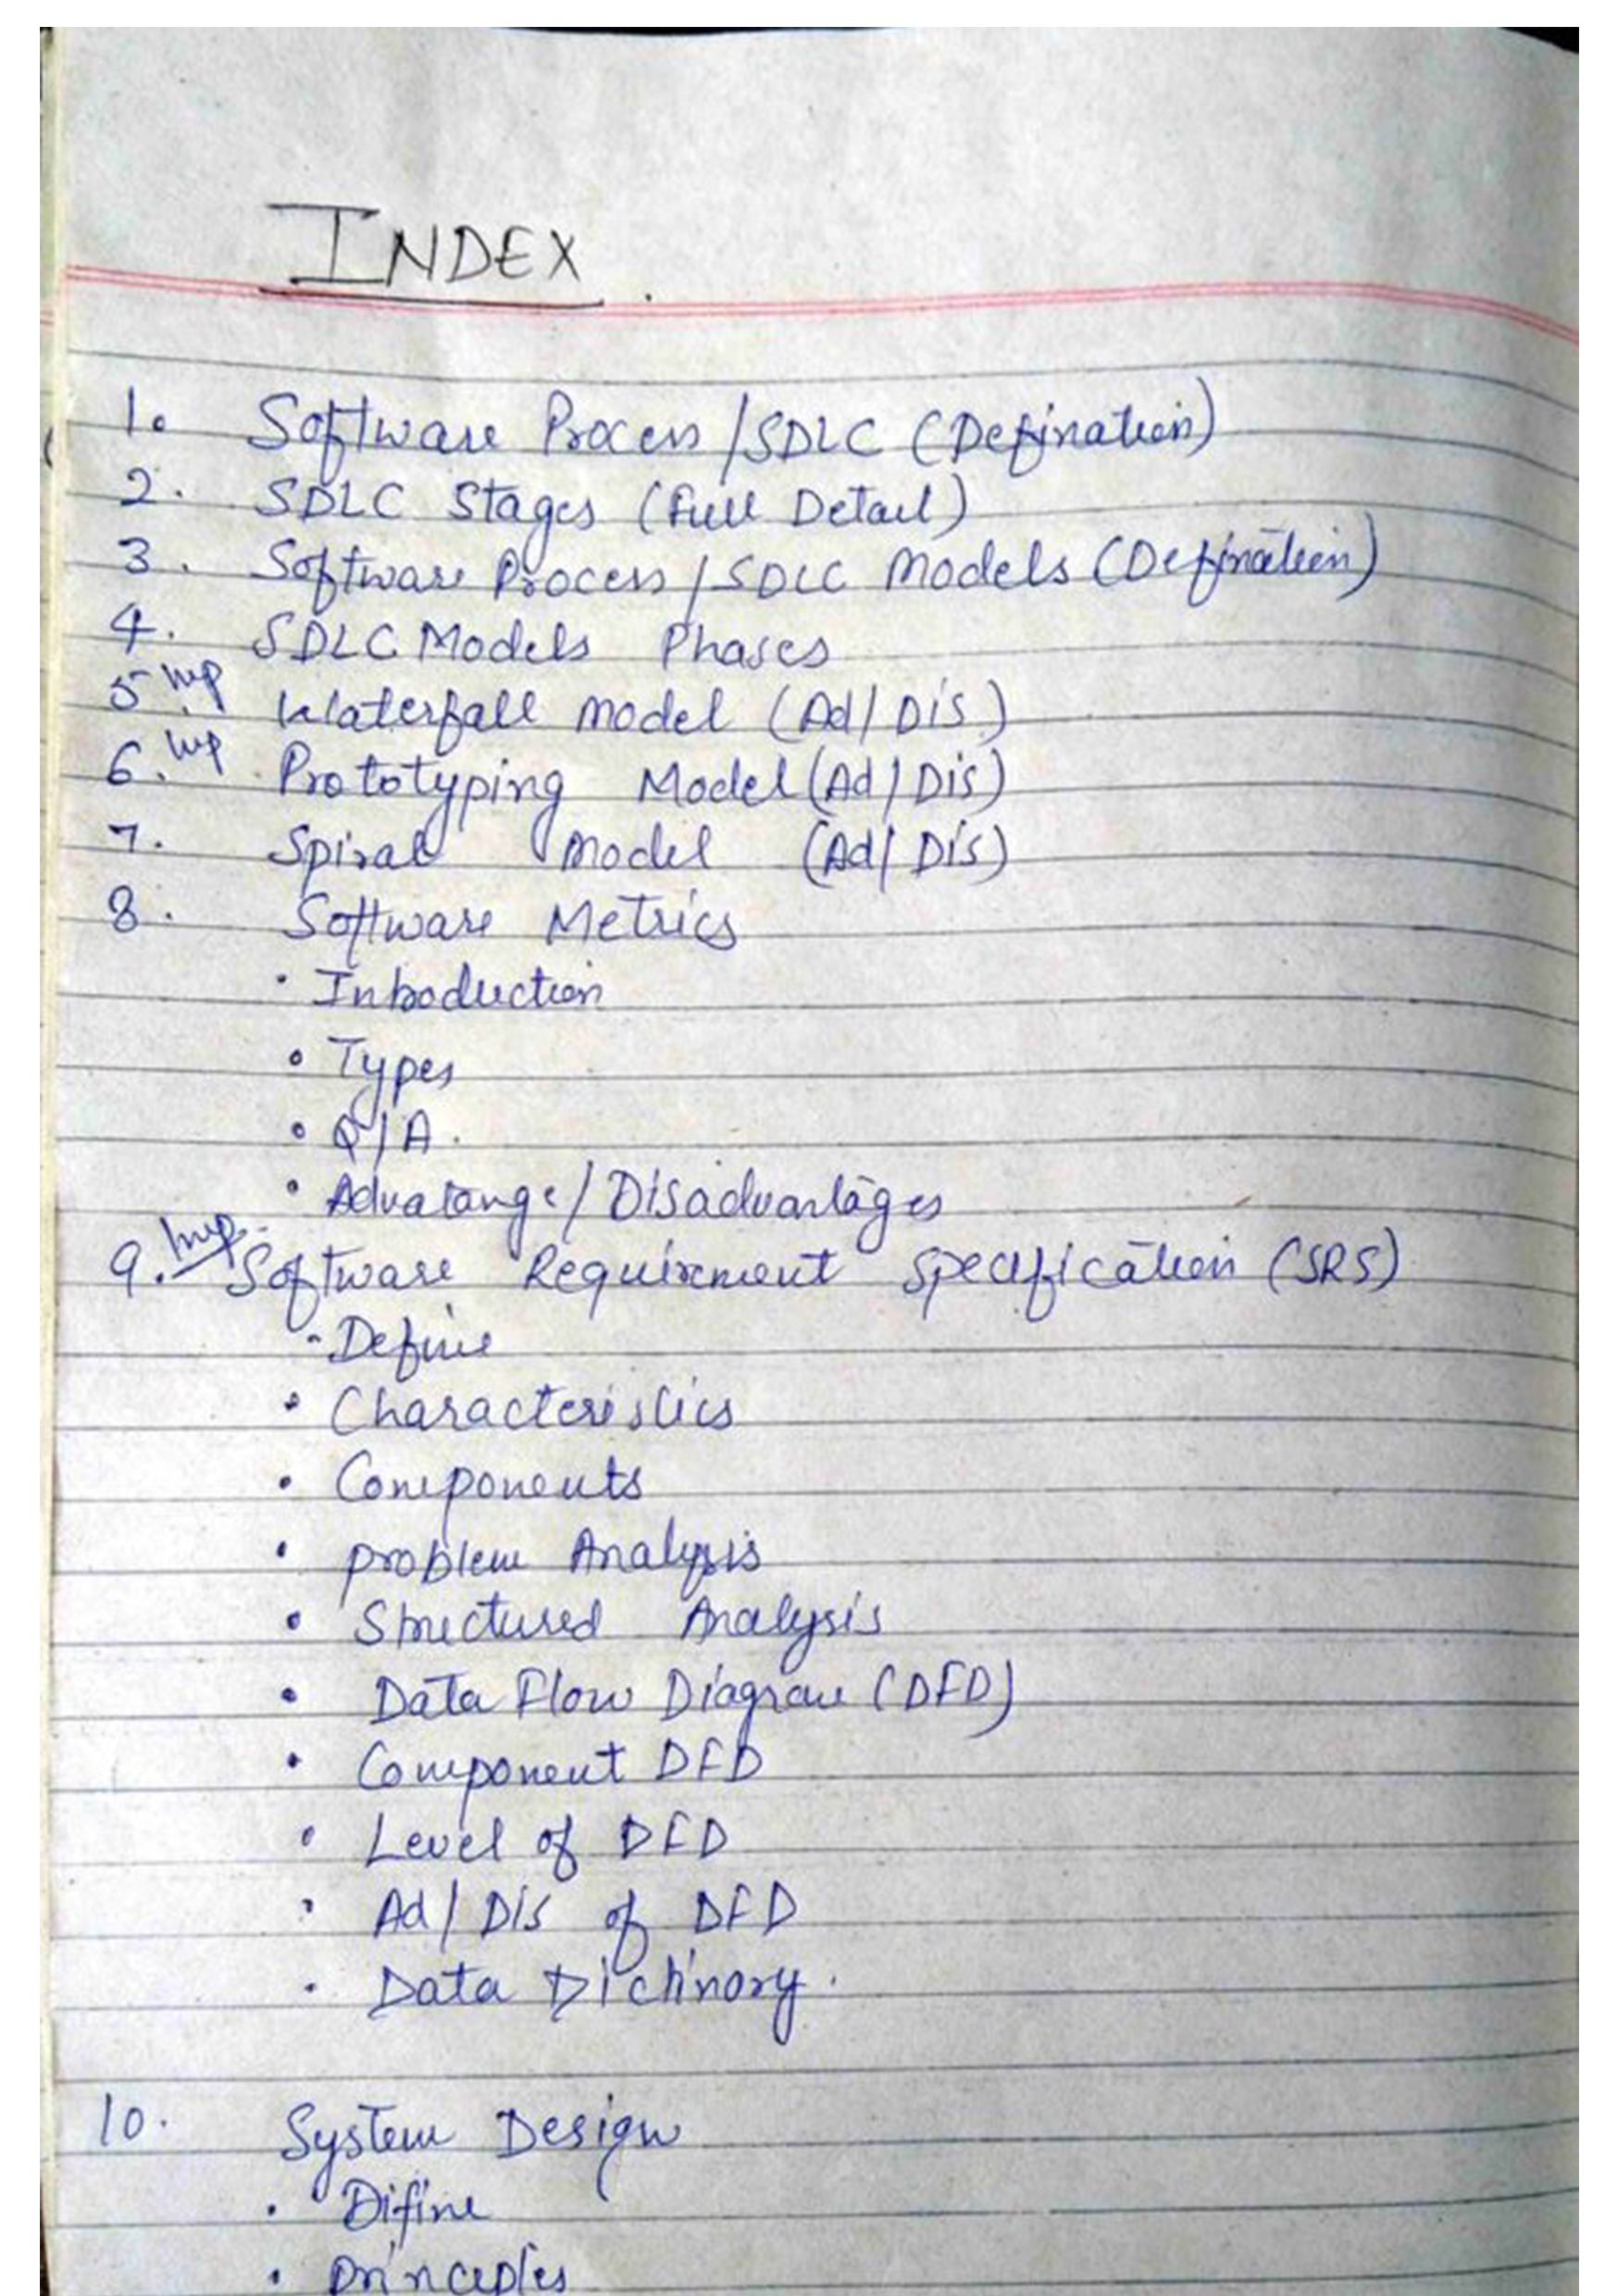 INDEX.
1. Software Process/SDLC (Defination)
2. SDLC Stages (Full Detail)
3. Software Process/SDLC Models (Defination)
4. SDLC Models Phases
5 Imp. Waterfall model (Ad/Dis)
6. Imp Prototyping Model (Ad/Dis)
7. Spiral Model (Ad/Dis)
8. Software Metrics
• Introduction
• Types
• Q/A.
• Advatange/Disadvantages
9. Imp. Software Requirement Specification (SRS)
• Define
• Characteristics
• Components
• problem Analysis
• Structured Analysis
• Data Flow Diagram (DFD)
• Component DFD
• Level of DFD
• Ad/Dis of DFD
• Data Dictinory.
10. System Design
• Difine
• principles